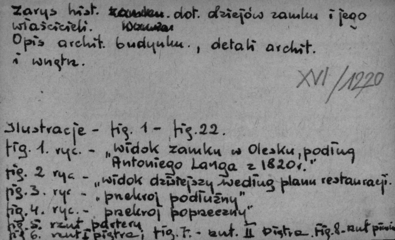 Zarys hist. dot. dziejów zamku i jego
właścicieli.
Opis archit. budynku, detali archit.
i wnętrz.
XVI/1220
Ilustracje - fig. 1 - fig. 22.
fig. 1. ryc. - "widok zamku w Olesku, podług
Antoniego Langa z 1820r."
fig. 2 ryc - "widok dzisiejszy według planu restauracji.
fig. 3. ryc - "przekrój podłużny"
fig. 4. ryc. - "przekrój poprzeczny"
fig. 5. rzut parteru
fig. 6. rzut I piętra, fig. 7. - rzut II piętra, fig. 8. rzut